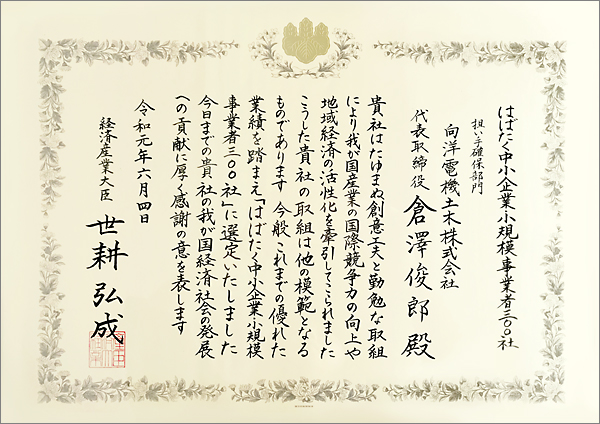 はばたく中小企業小規模事業者三〇〇社
担い手確保部門
向洋電機土木株式会社
代表取締役 倉澤俊郎 殿
貴社はたゆまぬ創意工夫と勤勉な取組
により我が国産業の国際競争力の向上や
地域経済の活性化を牽引してこられました
こうした貴社の取組は他の模範となる
ものであります 今般これまでの優れた
業績を踏まえ「はばたく中小企業小規模
事業者三〇〇社」に選定いたしました
今日までの貴社の我が国経済社会の発展
への貢献に厚く感謝の意を表します
令和元年六月四日
経済産業大臣 世耕弘成